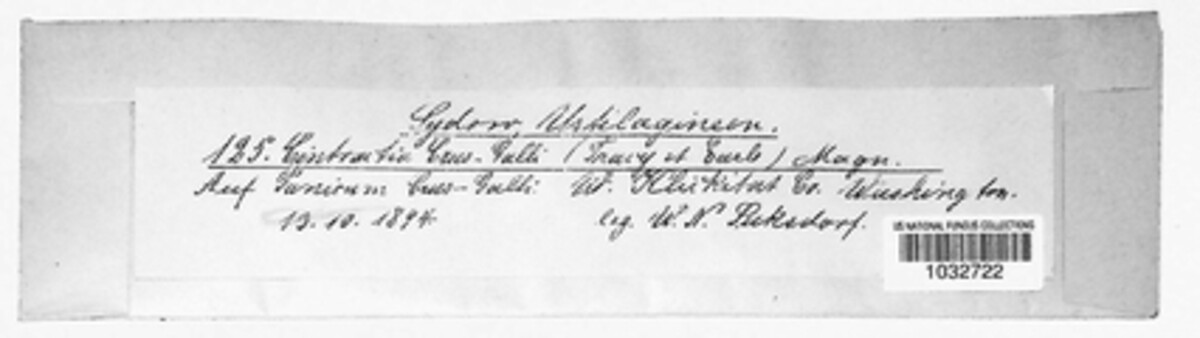 Sydow, Ustilagineen.
125. Cintractia Crus-Galli (Tracy et Earle) Magn.
Auf Panicum Crus-Galli W. Klickitat Co. Washington.
13. 10. 1894. leg. W. N. Suksdorf.
US NATIONAL FUNGUS COLLECTIONS
1032722